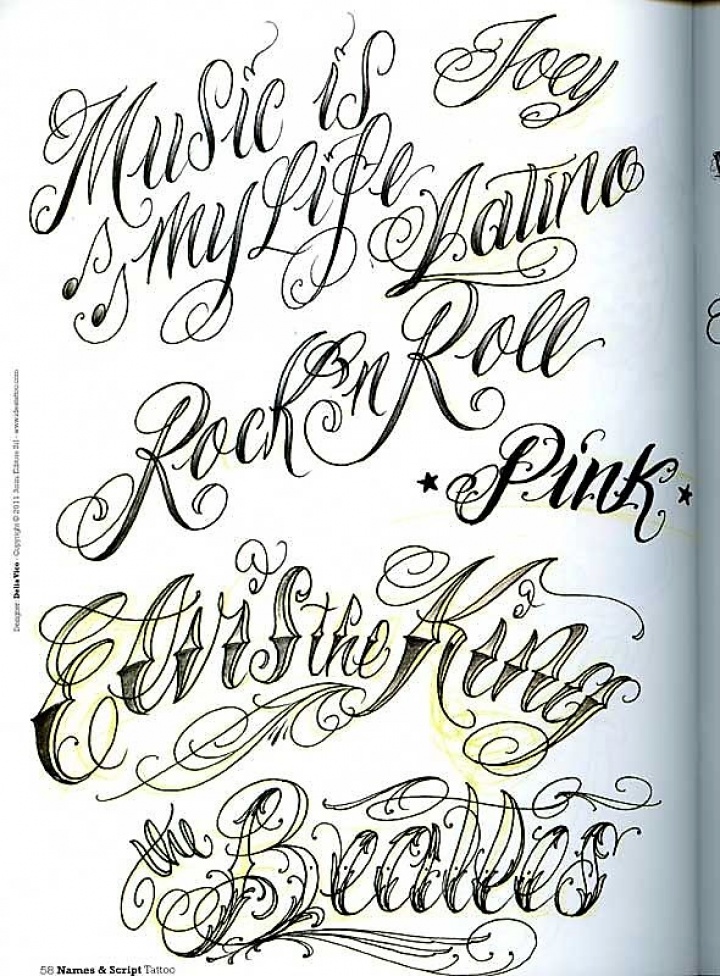 Joey
Music is
my Life
Latino
Rock'n Roll
Pink
Elvis the King
the Beatles
Designer Delia Vico - Copyright © 2011
58 Names & Script Tattoo